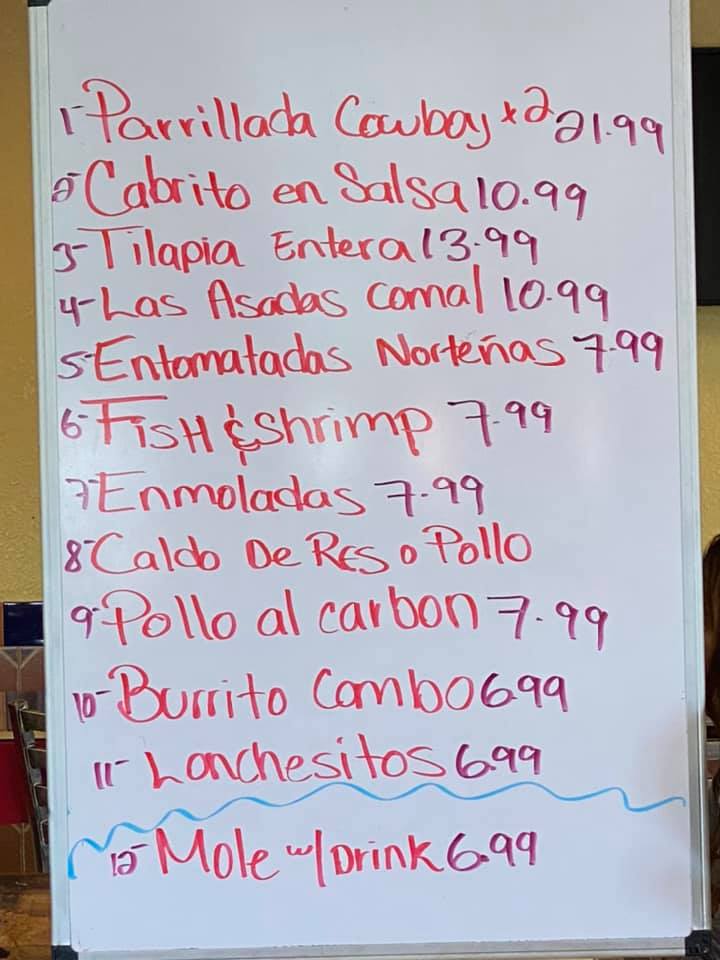 1- Parrillada Cowboy x2 21.99
2- Cabrito en Salsa 10.99
3- Tilapia Entera 13.99
4- Las Asadas comal 10.99
5- Entomatadas Norteñas 7.99
6- Fish & shrimp 7.99
7- Enmoladas 7.99
8- Caldo De Res o Pollo
9- Pollo al carbon 7.99
10- Burrito Combo 6.99
11- Lonchesitos 6.99
12- Mole w/ Drink 6.99